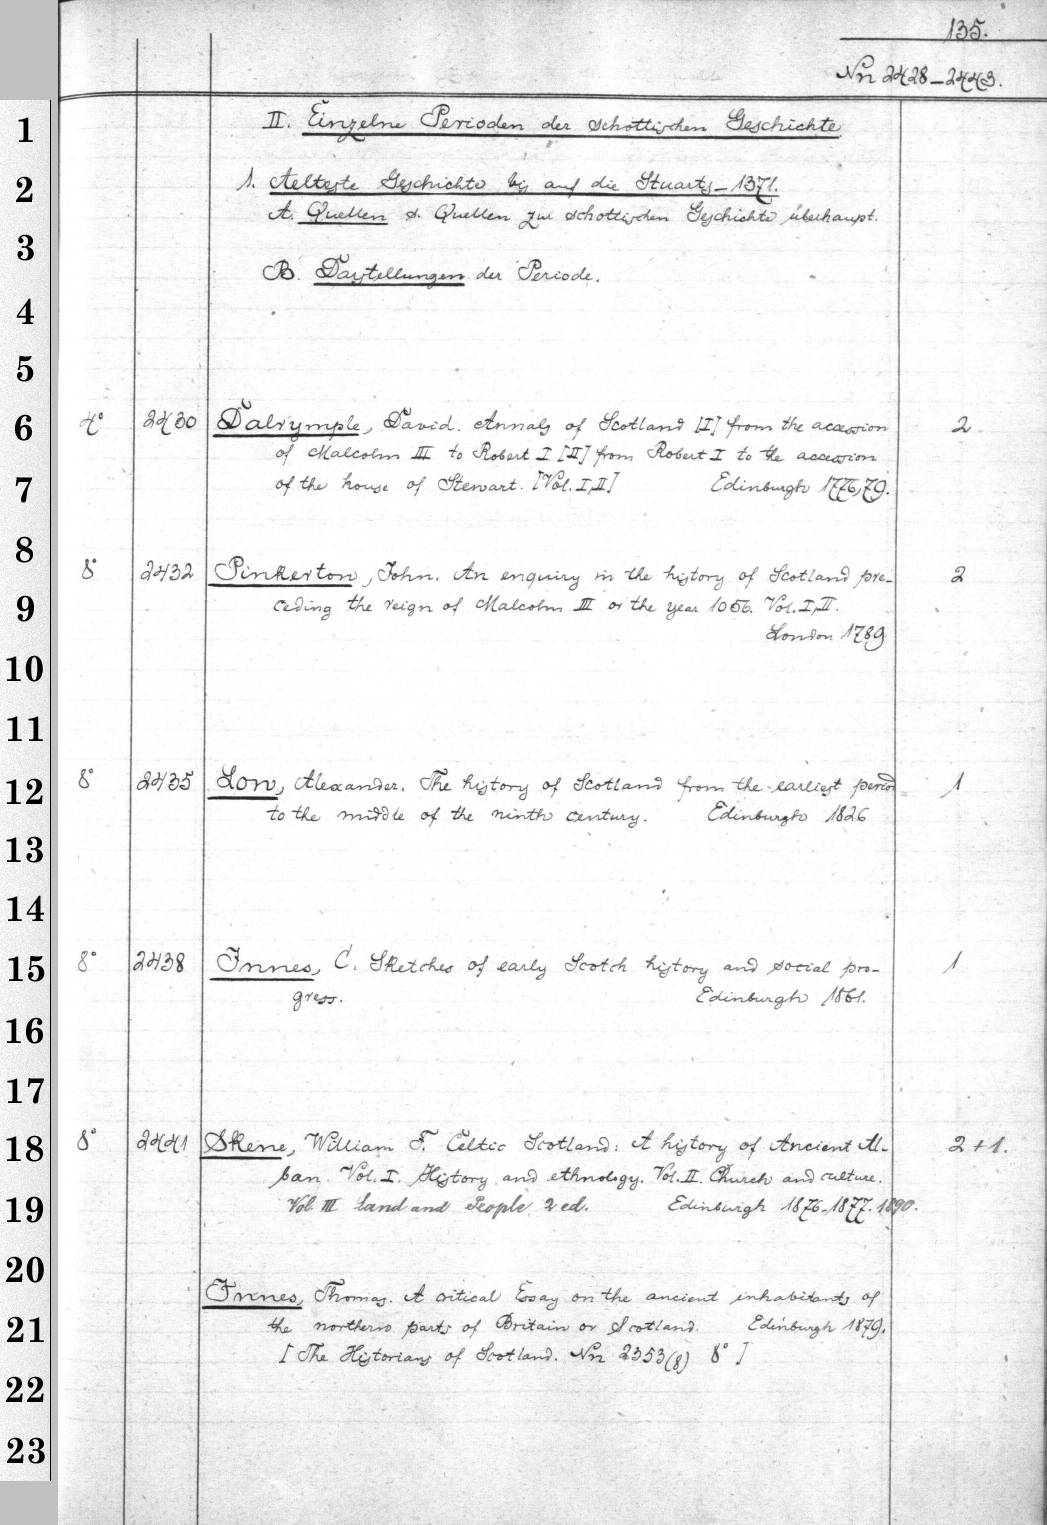 135.
Nn 2428-2443.
1
II. Einzelne Perioden der schottischen Geschichte
2
1. Aelteste Geschichte bis auf die Stuarts-1371.
A. Quellen s. Quellen zur schottischen Geschichte überhaupt.
3
B. Darstellungen der Periode.
4
5
6
4° 2430 Dalrymple, David. Annals of Scotland [I] from the accession 2
of Malcolm III to Robert I [II] from Robert I to the accession
7
of the house of Stewart. [Vol. I,II] Edinburgh 1776,79.
8
8° 2432 Pinkerton, John. An enquiry in the history of Scotland pre- 2
9
ceding the reign of Malcolm III or the year 1056. Vol. I,II.
London 1789
10
11
12
8° 2435 Low, Alexander. The history of Scotland from the earliest period 1
to the middle of the ninth century. Edinburgh 1826
13
14
15
8° 2438 Innes, C. Sketches of early Scotch history and social pro- 1
gress. Edinburgh 1861.
16
17
18
8° 2441 Skene, William F. Celtic Scotland: A history of Ancient Al- 2+1.
ban. Vol. I. History and ethnology. Vol. II. Church and culture.
19
Vol. III Land and People 2 ed. Edinburgh 1876-1877. 1890.
20
Innes, Thomas. A critical Essay on the ancient inhabitants of
21
the northern parts of Britain or Scotland. Edinburgh 1879.
[The Historians of Scotland. Nn 2353(8) 8°]
22
23